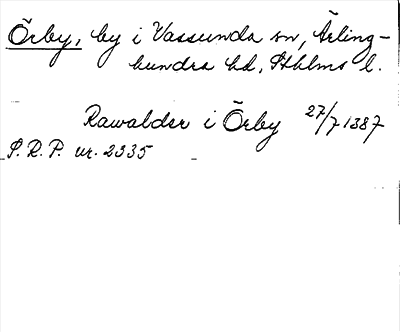 Örby, by i Vassunda sn, Ärling-
hundra hd, Sthlms l.
Rawalder i Örby 27/7 1387
S.R.P. nr. 2335